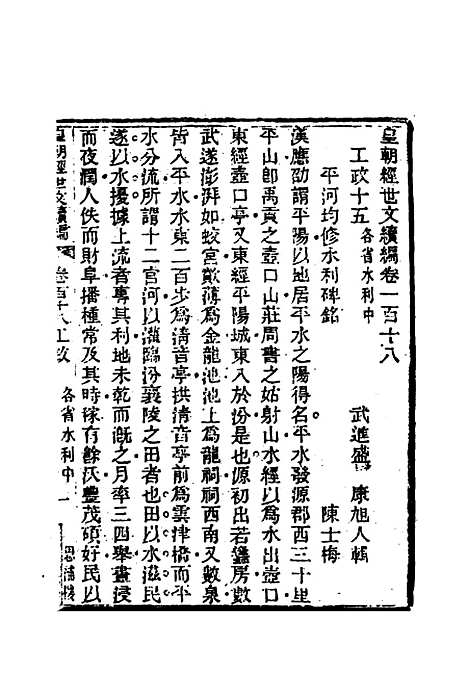 皇朝經世文續編卷一百十八
工政十五 各省水利中
武進盛 康旭人輯
平河均修水利碑銘
陳士梅
漢應劭謂平陽以地居平水之陽得名平水發源郡西三十里
平山卽禹貢之壺口山莊周書之姑射山水經以為水出壺口
東經壺口亭又東經平陽城東入於汾是也源初出若蠭房數
武遂澎湃如蛟宮歕薄為金龍池池上為龍祠祠西南又數泉
皆入平水水東二百步為清音亭拱清音亭前為雲津橋而平
水分流所謂十二官河以漑臨汾襄陵之田者也田以水滋民
遂以水擾據上流者專其利地未乾而漑之月率三四舉晝浸
而夜潤人佚而財阜播種常及其時稼有餘沃豐茂碩好民以
皇朝經世文續編 卷百十八 工政 各省水利中 一 思補樓